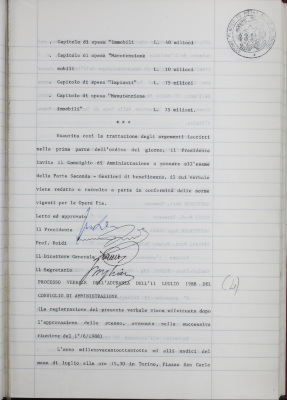 . Capitolo di spesa "Immobili L. 40 milioni
. Capitolo di spesa "Manutenzione
mobili L. 10 milioni
. Capitolo di spesa "Impianti" L. 75 milioni
. Capitolo di spesa "Manutenzione
immobili" L. 25 milioni.
* * *
Esaurita così la trattazione degli argomenti iscritti
nella prima parte dell'ordine del giorno, il Presidente
invita il Consiglio di Amministrazione a passare all'esame
della Parte Seconda - Gestioni di beneficenza, il cui verbale
viene redatto e raccolto a parte in conformità delle norme
vigenti per le Opere Pie.
Letto ed approvato
Il Presidente
Prof.
Il Direttore Generale
Il Segretario
PROCESSO VERBALE DELL'ADUNANZA DELL'11 LUGLIO 1988 DEL
CONSIGLIO DI AMMINISTRAZIONE
(La registrazione del presente verbale viene effettuata dopo
l'approvazione dello stesso, avvenuta nella successiva
riunione del 1°/8/1988)
L'anno millenovecentoottantotto ed alli undici del
mese di luglio alle ore 15,30 in Torino, Piazza San Carlo